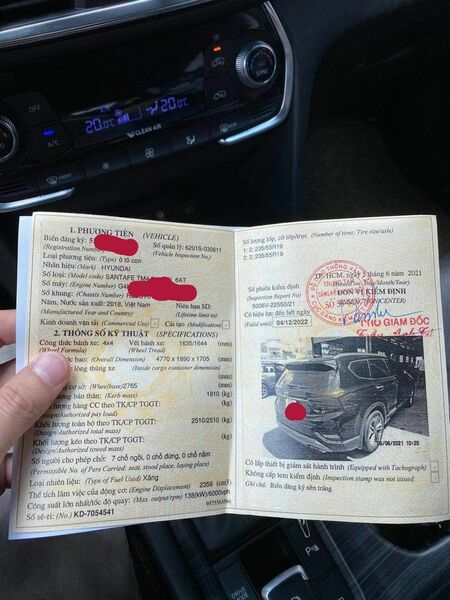 OFF
A/C
20.0°C
20.0°C
SYNC
CLEAN AIR
FRONT
1. PHƯƠNG TIỆN (VEHICLE)
Biển đăng ký: 5
(Registration Number)
Số quản lý: 6201S-030611
(Vehicle Inspection No.)
Loại phương tiện: (Type) ô tô con
Nhãn hiệu: (Mark) HYUNDAI
Số loại: (Model code) SANTAFE TM 6AT
Số máy: (Engine Number) G4
Số khung: (Chassis Number)
Năm, Nước sản xuất: 2018, Việt Nam
Niên hạn SD:
(Manufactured Year and Country)
(Lifetime limit to)
Kinh doanh vận tải: (Commercial Use) -
Cải tạo (Modification) -
2. THÔNG SỐ KỸ THUẬT (SPECIFICATIONS)
Công thức bánh xe: 4x4
Vết bánh xe: 1635/1644 (mm)
(Wheel Formula)
(Wheel Tread)
bao: (Overall Dimension) 4770 x 1890 x 1705 (mm)
lòng thùng xe (Inside cargo container dimension) (mm)
(Wheelbase)2765 (mm)
bản thân: (Kerb mass) 1810 (kg)
lượng hàng CC theo TK/CP TGGT: (kg)
(Design/Authorized pay load)
Khối lượng toàn bộ theo TK/CP TGGT: 2510/2510 (kg)
(Design/Authorized total mass)
Khối lượng kéo theo TK/CP TGGT: (kg)
(Design/Authorized towed mass)
Số người cho phép chở: 7 chỗ ngồi, 0 chỗ đứng, 0 chỗ nằm
(Permissible No. of Pers Carried: seat, stood place, laying place)
Loại nhiên liệu: (Type of Fuel Used) Xăng
Thể tích làm việc của động cơ: (Engine Displacement) 2359 (cm3)
Công suất lớn nhất/tốc độ quay: (Max. output/rpm) 138(kW)/6000vph
Số sê-ri: (No.) KD-7054541
Số lượng lốp, cỡ lốp/trục (Number of tires; Tire size/axle)
1: 2; 235/55R19
2: 2; 235/55R19
TP. HCM, ngày 5 tháng 6 năm 2021
Số phiếu kiểm định
(Inspection Report No.)
ĐƠN VỊ KIỂM ĐỊNH
5006V-22550/21
(INSPECTION CENTER)
Có hiệu lực đến hết ngày
(Valid until) 04/12/2022
PHÓ GIÁM ĐỐC
05/06/2021 10:20
Có lắp thiết bị giám sát hành trình (Equipped with Tachograph) -
Không cấp tem kiểm định (Inspection stamp was not issued) -
Ghi chú: Biển đăng ký nền trắng